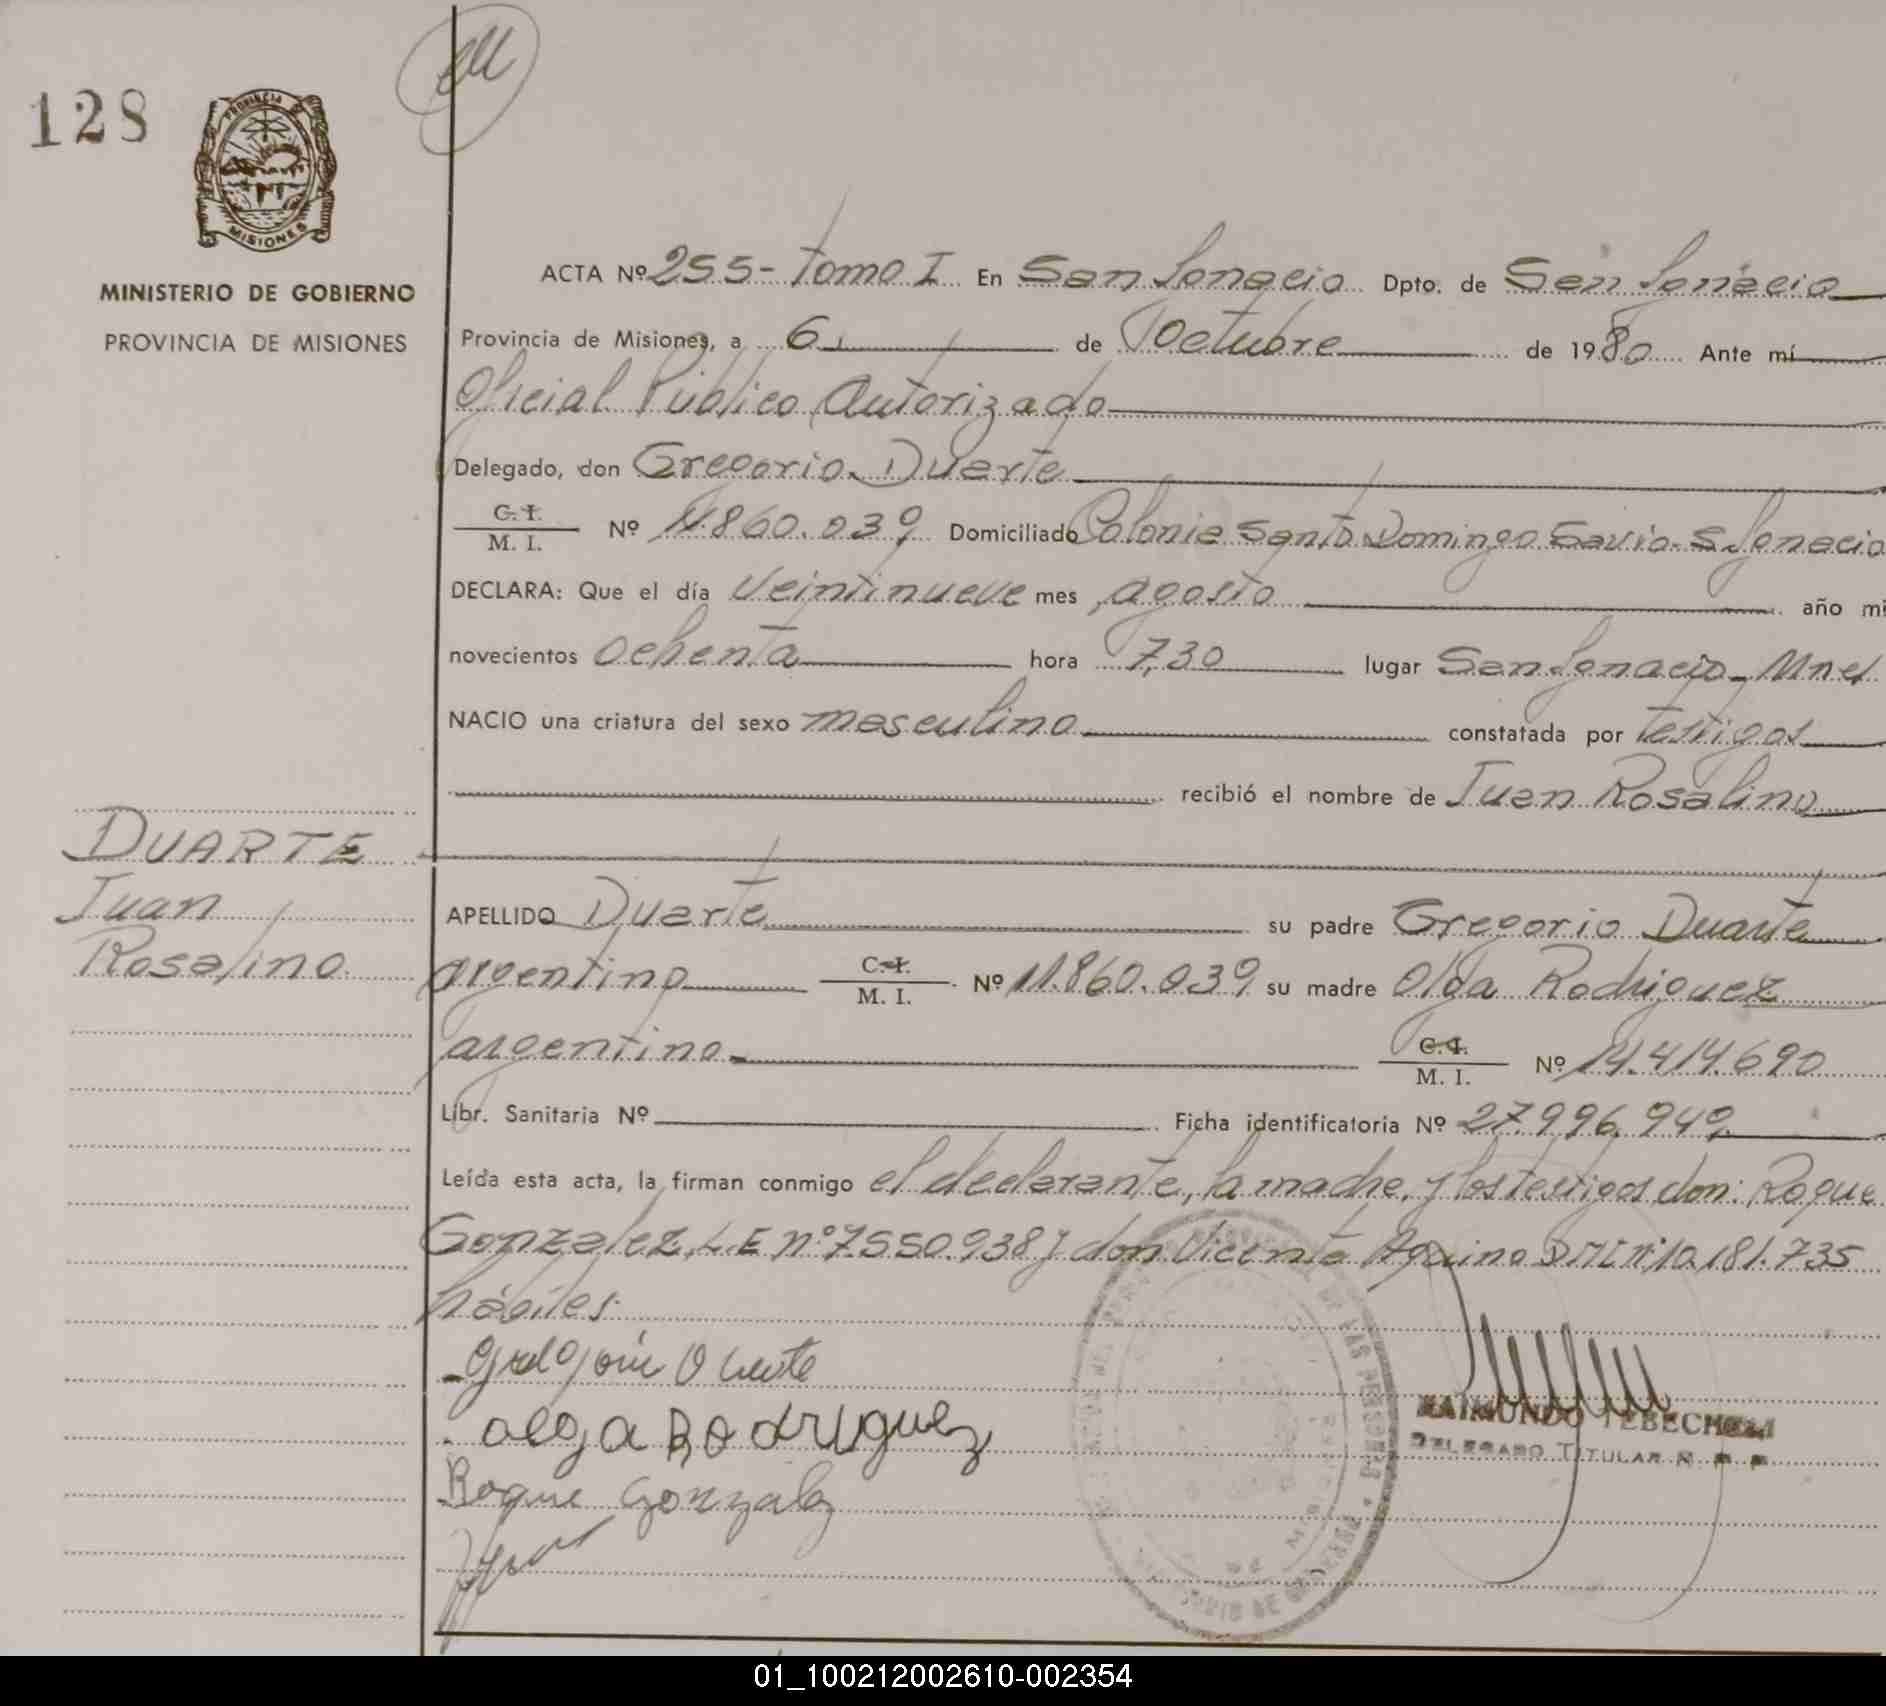 128
PROVINCIA DE
MISIONES
MINISTERIO DE GOBIERNO
PROVINCIA DE MISIONES
ACTA Nº 255- Tomo I En San Ignacio Dpto. de San Ignacio
Provincia de Misiones, a 6 de Octubre de 1980 Ante mí
Oficial Público Autorizado
Delegado, don Gregorio Duarte
C. I.
M. I. Nº 11.860.039 Domiciliado Colonia Santo Domingo Savio- S. Ignacio
DECLARA: Que el día Veintinueve mes agosto año mi
novecientos ochenta hora 7,30 lugar San Ignacio- Mnes
NACIO una criatura del sexo masculino constatada por testigos
recibió el nombre de Juan Rosalino
DUARTE
Juan
Rosalino
APELLIDO Duarte su padre Gregorio Duarte
argentino C. I. M. I. Nº 11.860.039 su madre Olga Rodriguez
argentino C. I. M. I. Nº 14.414.690
Libr. Sanitaria Nº Ficha identificatoria Nº 27.996.949
Leída esta acta, la firman conmigo el declarante, la madre, y los testigos don: Roque
Gonzalez, L E nº 7550.938 y don Vicente Aquino DNI Nº 10.181.735
hábiles.
Olga Rodriguez
Roque Gonzalez
RAIMUNDO TEBECHERI
DELEGADO TITULAR
DE LAS PERSONAS
01_100212002610-002354